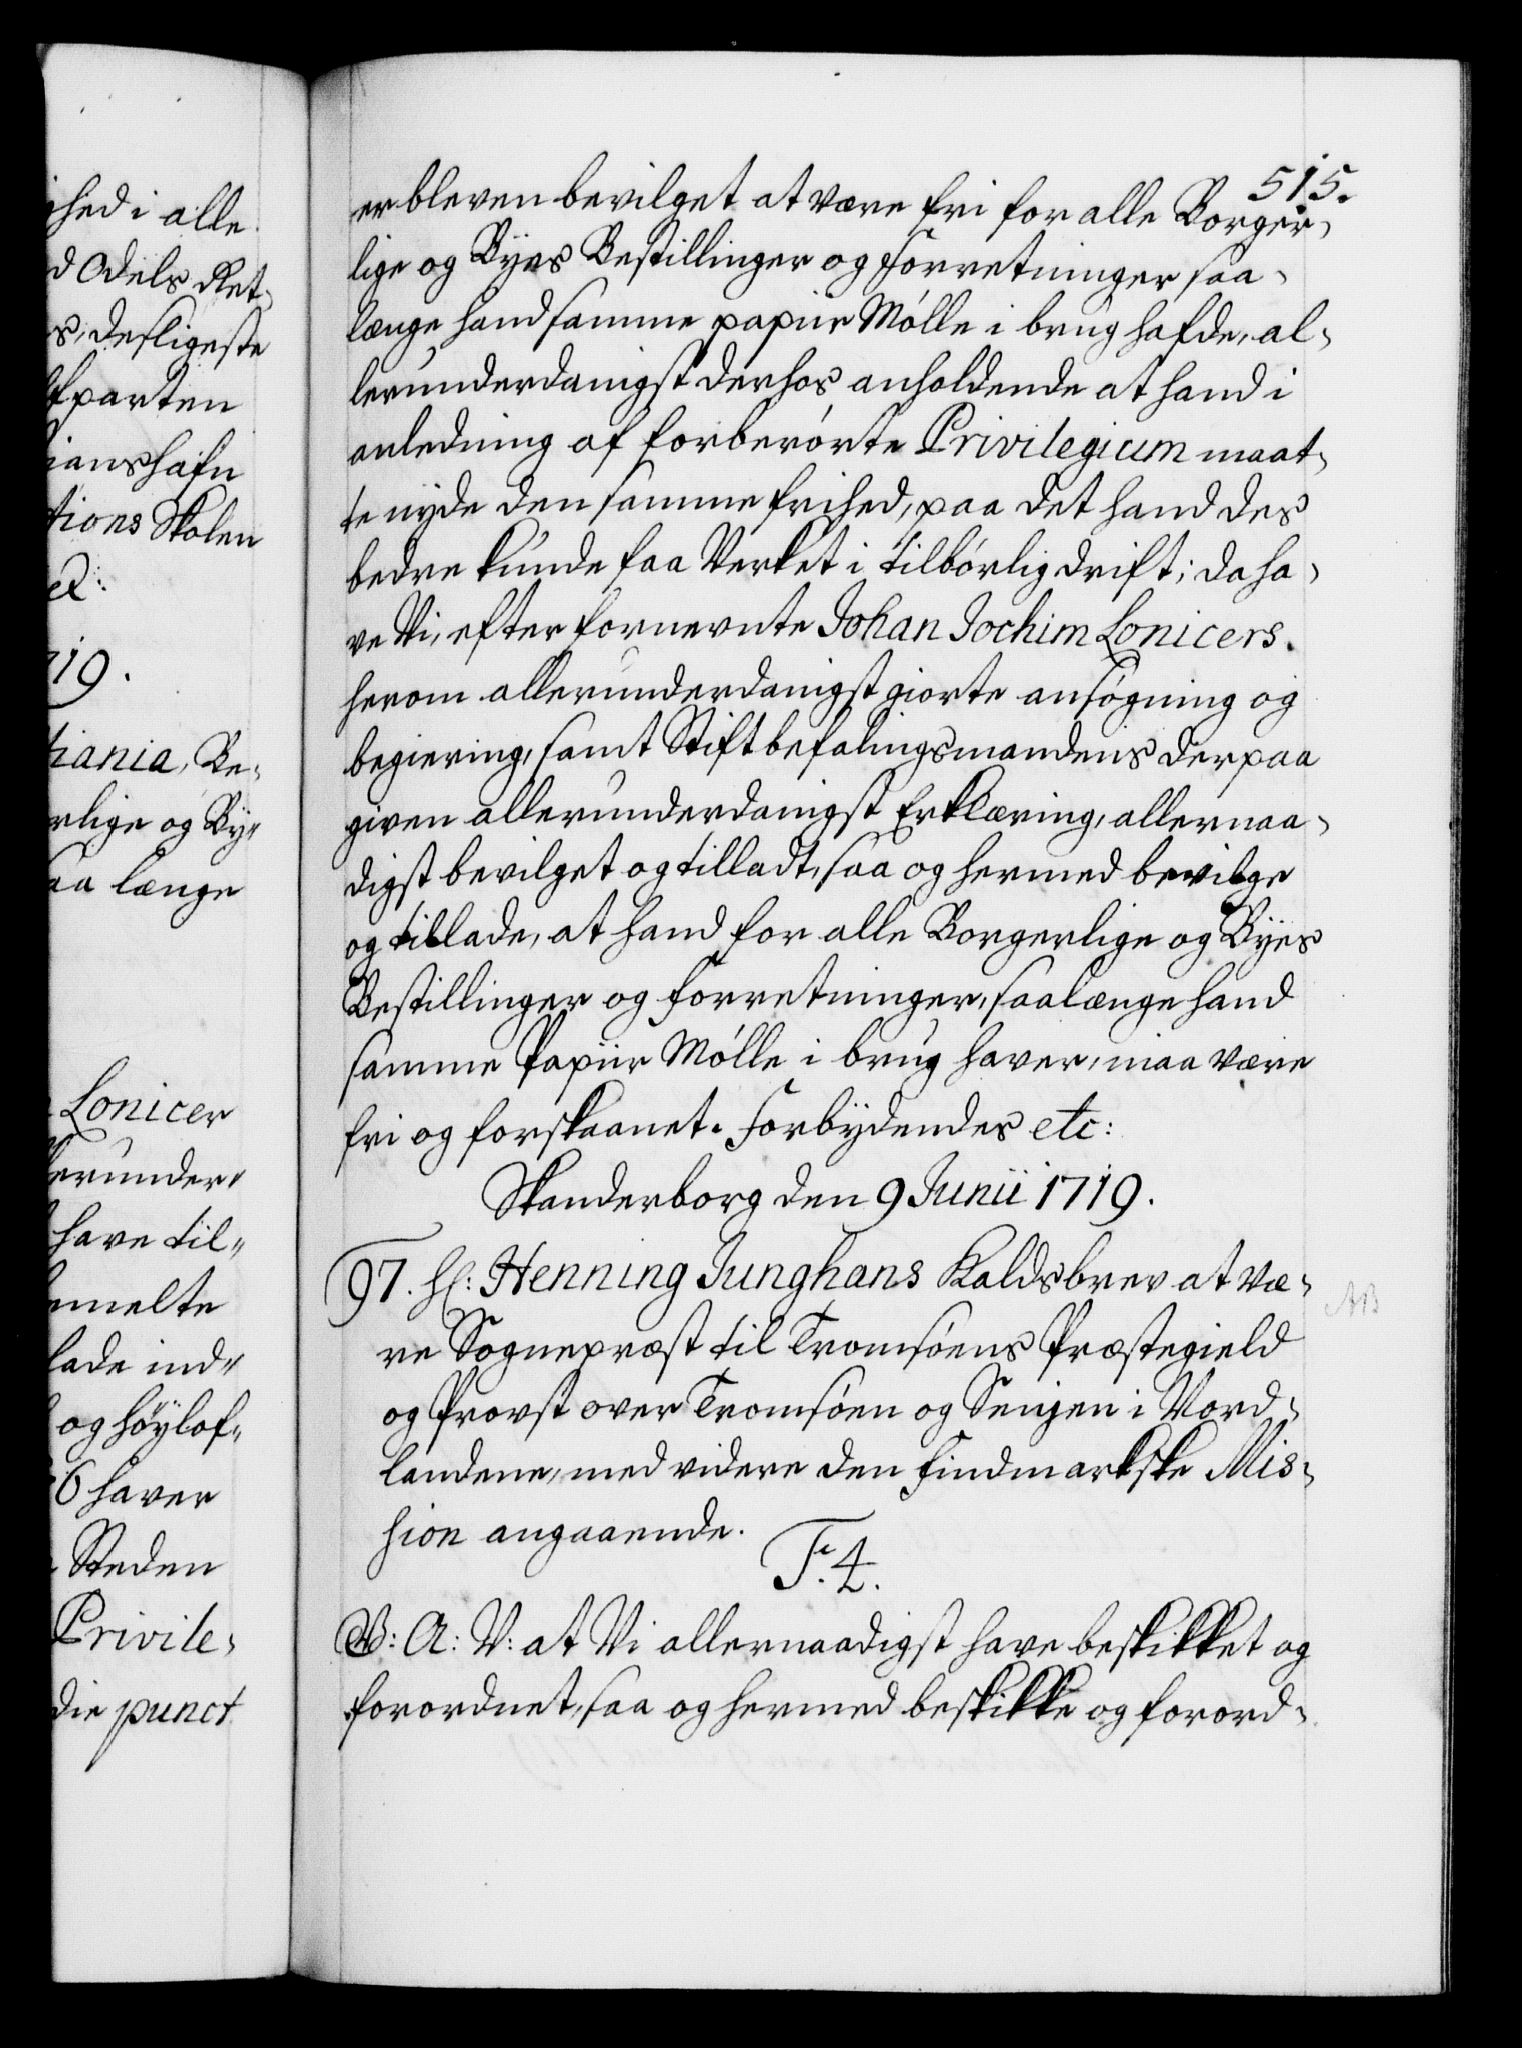 ihed i alle
d Odels Ret¬
s, desligeste
lfparten
ianshafn
tions Skolen
et:
719.
tiania, Be¬
rlige og By¬
aa længe
Lonicer
lerunder¬
have til¬
melte
lade ind¬
og høylof¬
6 haver
Steden
Privile¬
die punct
515.
er bleven bevilget at være fri for alle Borger¬
lige og Byes Bestillinger og Forretninger saa¬
længe hand samme papiir Mølle i brug hafde, al¬
lerunderdanigst derhos anholdende at hand i
anledning af forberørte Privilegium maat¬
te nyde den samme frihed, paa det hand des
bedre kunde faa Verket i tilbørlig drift; da ha¬
ve Vi, efter fornevnte Johan Jochim Lonicers
herom allerunderdanigst giorte ansøgning og
begiering, samt Stiftbefalingsmandens derpaa
given allerunderdanigst Erklæring, allernaa¬
digst bevilget og tilladt, saa og hermed bevilge
og tillade, at hand for alle Borgerlige og Byes
Bestillinger og forretninger, saalænge hand
samme Papiir Mølle i brug haver, maa være
fri og forskaanet. Forbydendes etc:
Skanderborg den 9 Junii 1719.
97. Hr: Henning Junghans Kaldsbrev at væ¬
re Sognepræst til Tromsøens Præstegield
og Provst over Tromsøen og Senjen i Nord¬
landene, med videre den Findmarkske Mis¬
sion angaaende.
F. 4.
G: A: V: at Vi allernaadigst have beskikket og
forordnet, saa og hermed beskikke og forord¬
AB